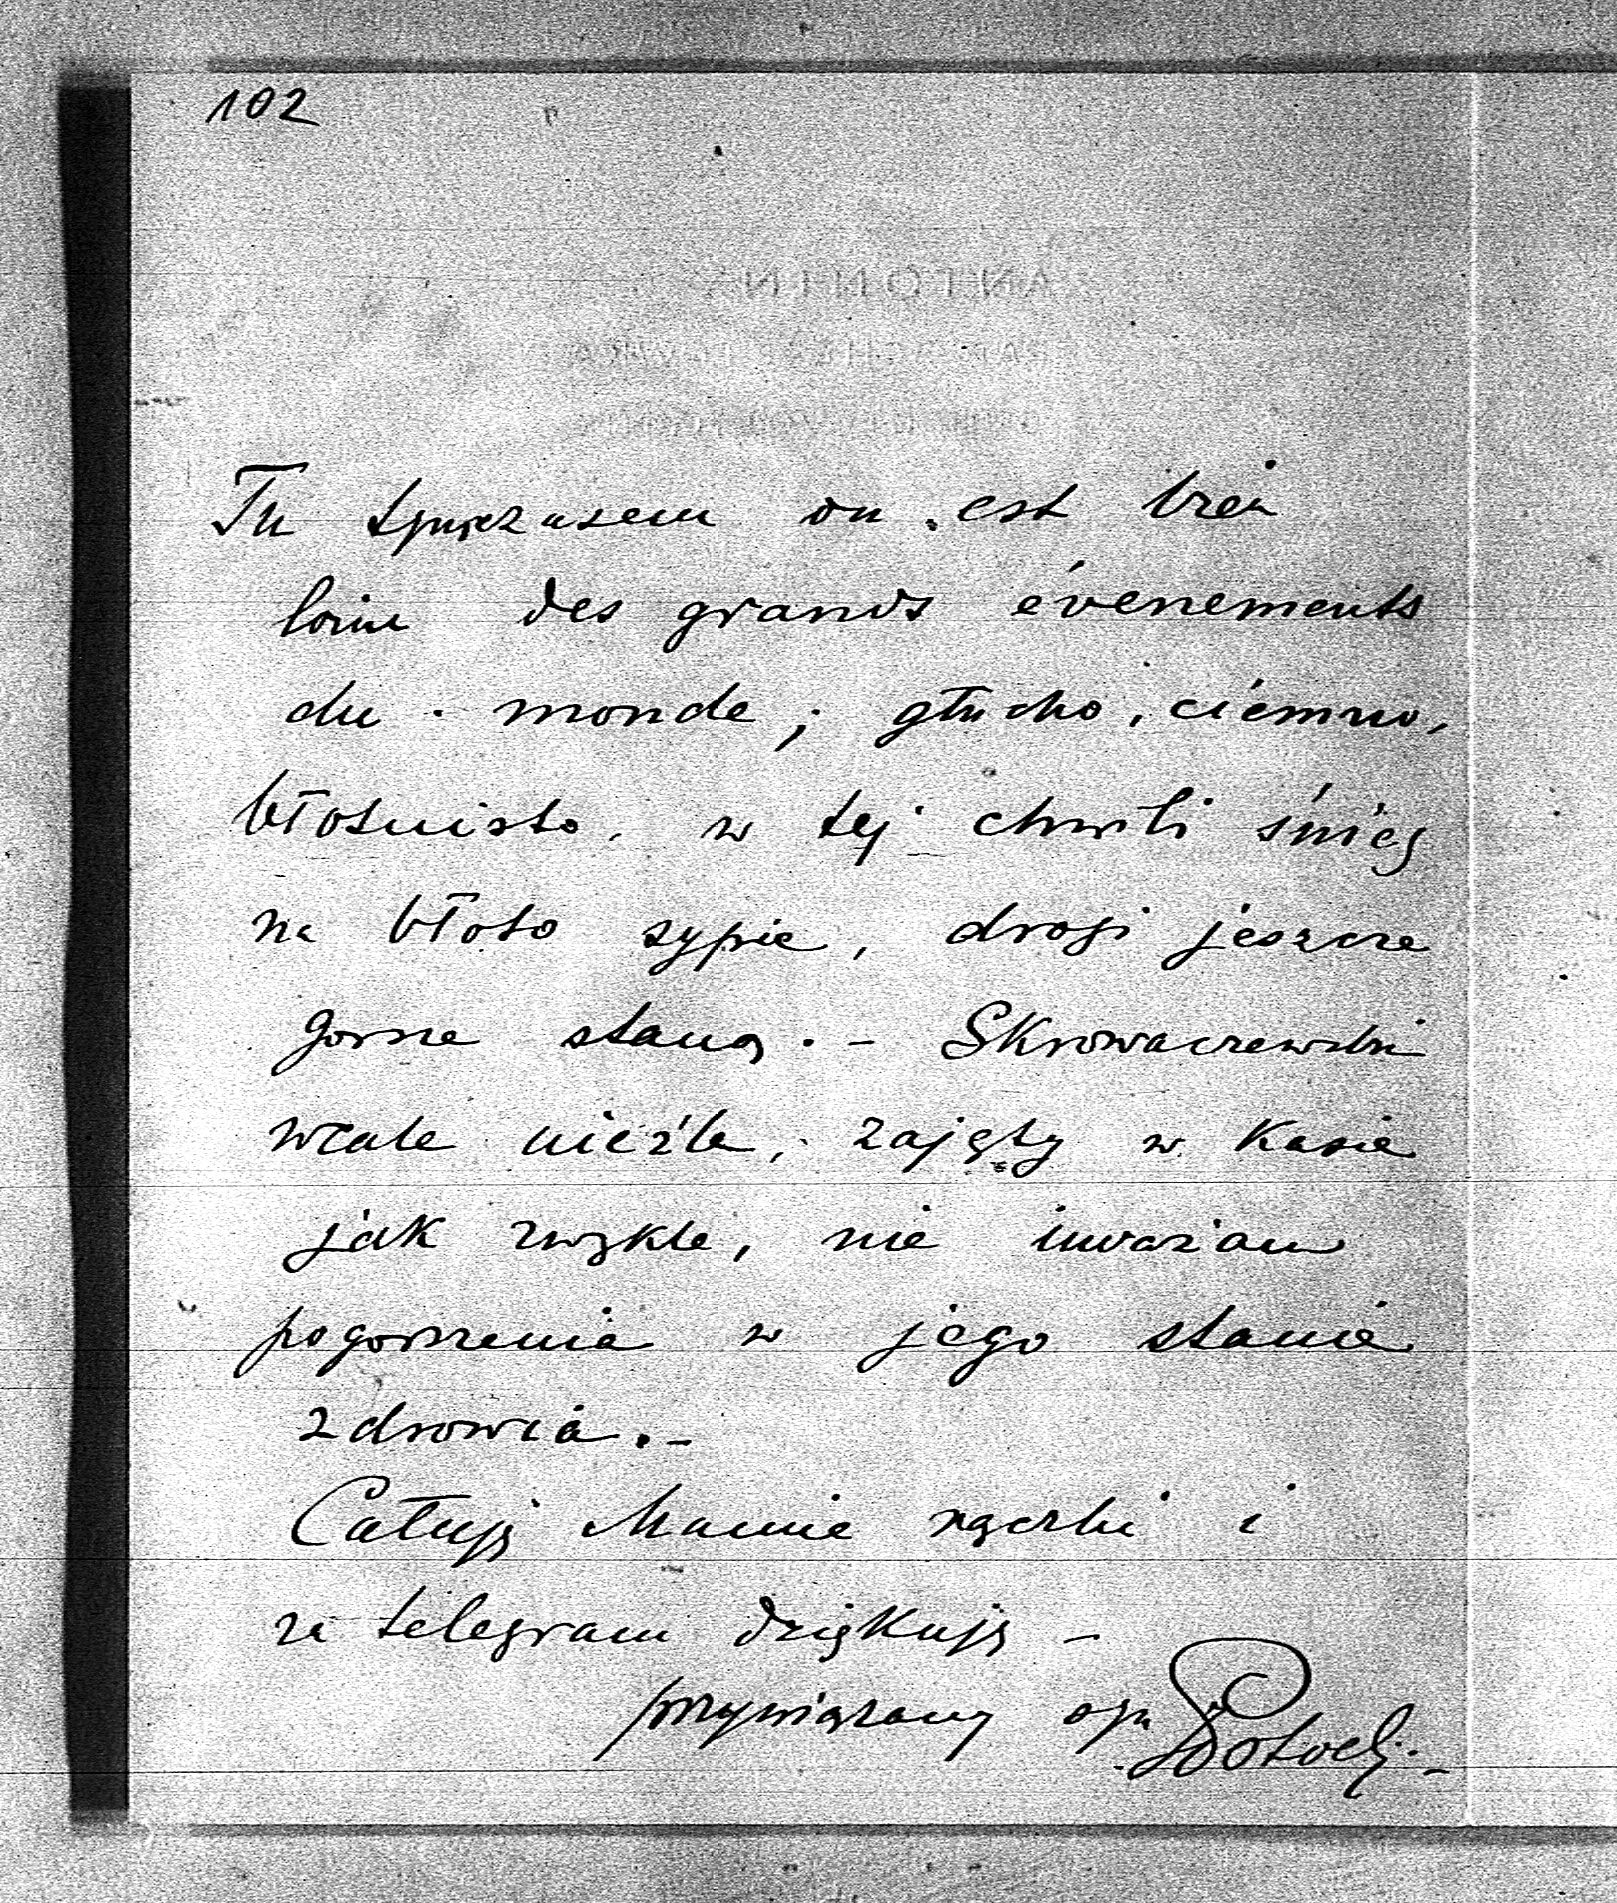 102
ANTONINY
Tu tymczasem on est bien
loin des grands événements
du monde; głucho, ciemno,
błotnisto, w tej chwili śnieg
na błoto sypie, drogi jeszcze
gorsze staną. - Skrowaczewski
wcale nieźle, zajęty w Kasie
jak zwykle, nie uważam
pogorszenia w jego stanie
zdrowia. -
Całuję Mamie rączki i
za telegram dziękuję -
przywiązany syn Potocki. -